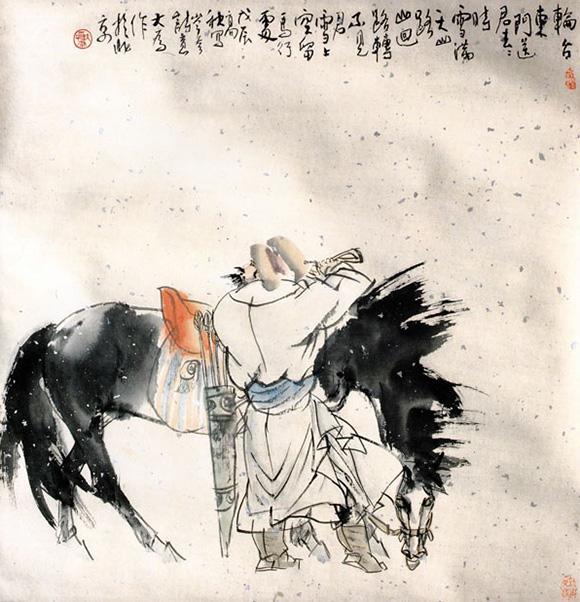 輪台
東
門送
君去
時
雪滿
天山
路
山回
路轉
不見
君
雪上
空留
馬行
處
戊辰
秋寫
岑參
詩意
大爲
作
於北
京